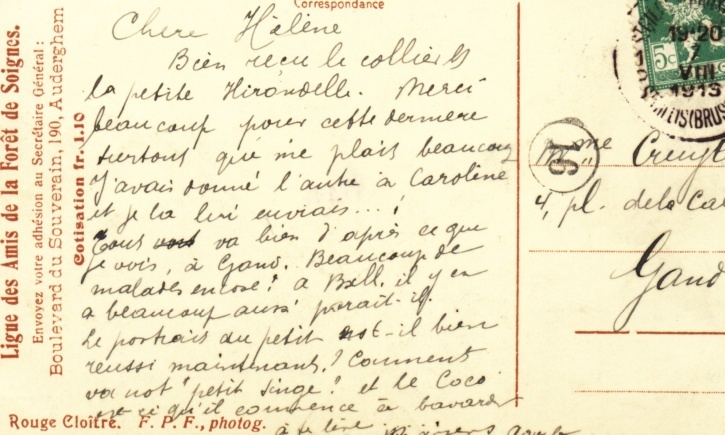 Correspondance
Ligue des Amis de la Forêt de Soignes.
Envoyez votre adhésion au Secrétaire Général:
Boulevard du Souverain, 190, Auderghem
Cotisation fr. 1.10
Chere Hélène
Bien recu le collier et
la petite Hirondelle. Merci
beaucoup pour cette derniere
surtout qui me plait beaucoup
J'avais donné l'autre à Caroline
et je la lui enviais...!
Tout va bien d'après ce que
je vois, à Gand. Beaucoup de
malades encore? a Bxll. il y en
a beaucoup aussi parait-il.
Le portrait du petit est-il bien
reussi maintenant? Comment
va not' petit singe? et le Coco
est ce qu'il commence à bavarder
à se
Rouge Cloître. F. P. F., photog.
5c
19-20
7
VIII
1913
16
Mme
4, pl. de la
Gand